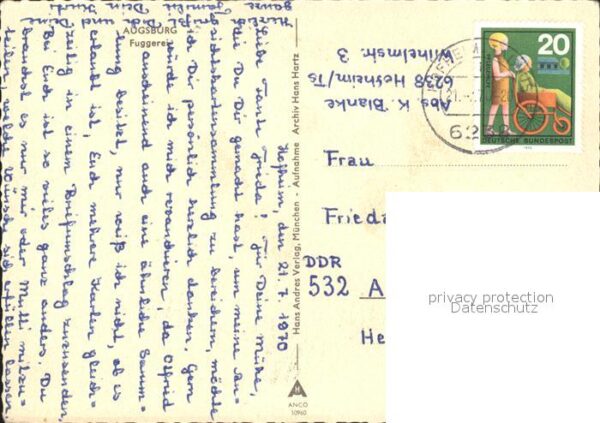 AUGSBURG
Fuggerei
Hofheim, den 21. 7. 1970
Liebe Tante Frieda! Für Deine Mühe,
die Du Dir gemacht hast, um meine An-
sichtskartensammlung zu bereichern, möchte
ich Dir persönlich herzlich danken. Gern
würde ich mich revanchieren, da Olfried
anscheinend auch eine ähnliche Samm-
lung besitzt, nur weiß ich nicht, ob es
erlaubt ist, Euch mehrere Karten gleich-
zeitig in einem Briefumschlag zuzusenden.
Bei Euch ist so vieles ganz anders. Du
brauchst es nur mir oder Mutti mitzu-
teilen, welche Wünsche sich erfüllen lassen.
Herzlich grüßt Dich und
ganze Familie Dein
Hans Andres Verlag, München - Aufnahme Archiv Hans Hartz
ANCO
10960
Abs. K. Blanke
6238 Hofheim/Ts
Wilhelmstr. 3
20
DEUTSCHE BUNDESPOST
623
Frau
Frieda
DDR
532 A
He
privacy protection
Datenschutz